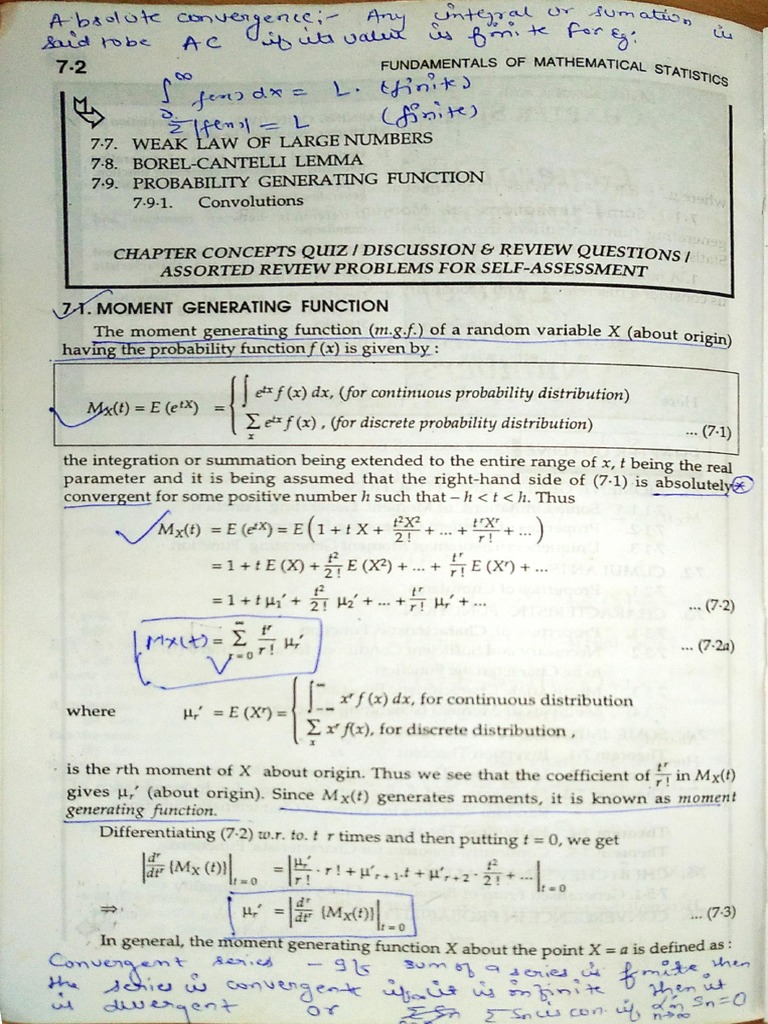 Absolute convergence;- Any integral or sumation is
said to be AC if its value is finite For eg:
7·2 FUNDAMENTALS OF MATHEMATICAL STATISTICS
∫₀^∞ f(x) dx = L. (finite)
Σ|f(x)| = L (finite)
7·7. WEAK LAW OF LARGE NUMBERS
7·8. BOREL-CANTELLI LEMMA
7·9. PROBABILITY GENERATING FUNCTION
7·9·1. Convolutions
CHAPTER CONCEPTS QUIZ / DISCUSSION & REVIEW QUESTIONS /
ASSORTED REVIEW PROBLEMS FOR SELF-ASSESSMENT
7·1. MOMENT GENERATING FUNCTION
The moment generating function (m.g.f.) of a random variable X (about origin)
having the probability function f (x) is given by :
M_X(t) = E (e^{tX}) = { ∫ e^{tx} f (x) dx, (for continuous probability distribution)
Σ_x e^{tx} f (x) , (for discrete probability distribution) ... (7·1)
the integration or summation being extended to the entire range of x, t being the real
parameter and it is being assumed that the right-hand side of (7·1) is absolutely *
convergent for some positive number h such that – h < t < h. Thus
M_X(t) = E (e^{tX}) = E ( 1 + t X + t²X²/2! + ... + t^r X^r/r! + ... )
= 1 + t E (X) + t²/2! E (X²) + ... + t^r/r! E (X^r) + ...
= 1 + t μ₁′ + t²/2! μ₂′ + ... + t^r/r! μ_r′ + ... ... (7·2)
Mx(t) = Σ_{r=0}^∞ t^r/r! μ_r′ ... (7·2a)
where μ_r′ = E (X^r) = { ∫_{-∞}^{∞} x^r f (x) dx, for continuous distribution
Σ_x x^r f(x), for discrete distribution ,
is the rth moment of X about origin. Thus we see that the coefficient of t^r/r! in M_X(t)
gives μ_r′ (about origin). Since M_X(t) generates moments, it is known as moment
generating function.
Differentiating (7·2) w.r. to. t r times and then putting t = 0, we get
|d^r/dt^r {M_X (t)}|_{t = 0} = |μ_r′/r! · r! + μ′_{r + 1}·t + μ′_{r + 2} · t²/2! + ...|_{t = 0}
⇒ μ_r′ = |d^r/dt^r {M_X(t)}|_{t = 0} ... (7·3)
In general, the moment generating function X about the point X = a is defined as :
Convergent series - If sum of a series is finite then
the series is convergent if it is infinite then it
is divergent or Σ Sn is con. if lim_{n→∞} Sn = 0